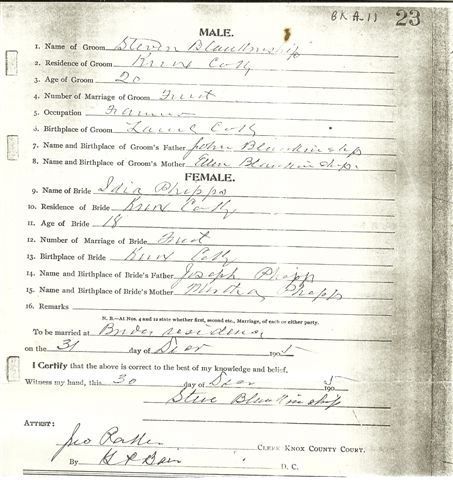 BK A-11 23
MALE.
1. Name of Groom Steven Blankinship
2. Residence of Groom Knox Co Ky
3. Age of Groom 20
4. Number of Marriage of Groom First
5. Occupation Farmer
6. Birthplace of Groom Laurel Co Ky
7. Name and Birthplace of Groom's Father John Blankinship
8. Name and Birthplace of Groom's Mother Ellen Blankinship
FEMALE.
9. Name of Bride Phipps
10. Residence of Bride Knox Co Ky
11. Age of Bride 18
12. Number of Marriage of Bride First
13. Birthplace of Bride Knox Co Ky
14. Name and Birthplace of Bride's Father Joseph Phipps
15. Name and Birthplace of Bride's Mother Martha Phipps
16. Remarks
N. B.—At Nos. 4 and 12 state whether first, second etc., Marriage, of each or either party.
To be married at Brides residence
on the 31 day of Decr 1905
I Certify that the above is correct to the best of my knowledge and belief.
Witness my hand, this 30 day of Decr 1905
Steve Blankinship
ATTEST:
Jno CLERK KNOX COUNTY COURT.
By D. C.